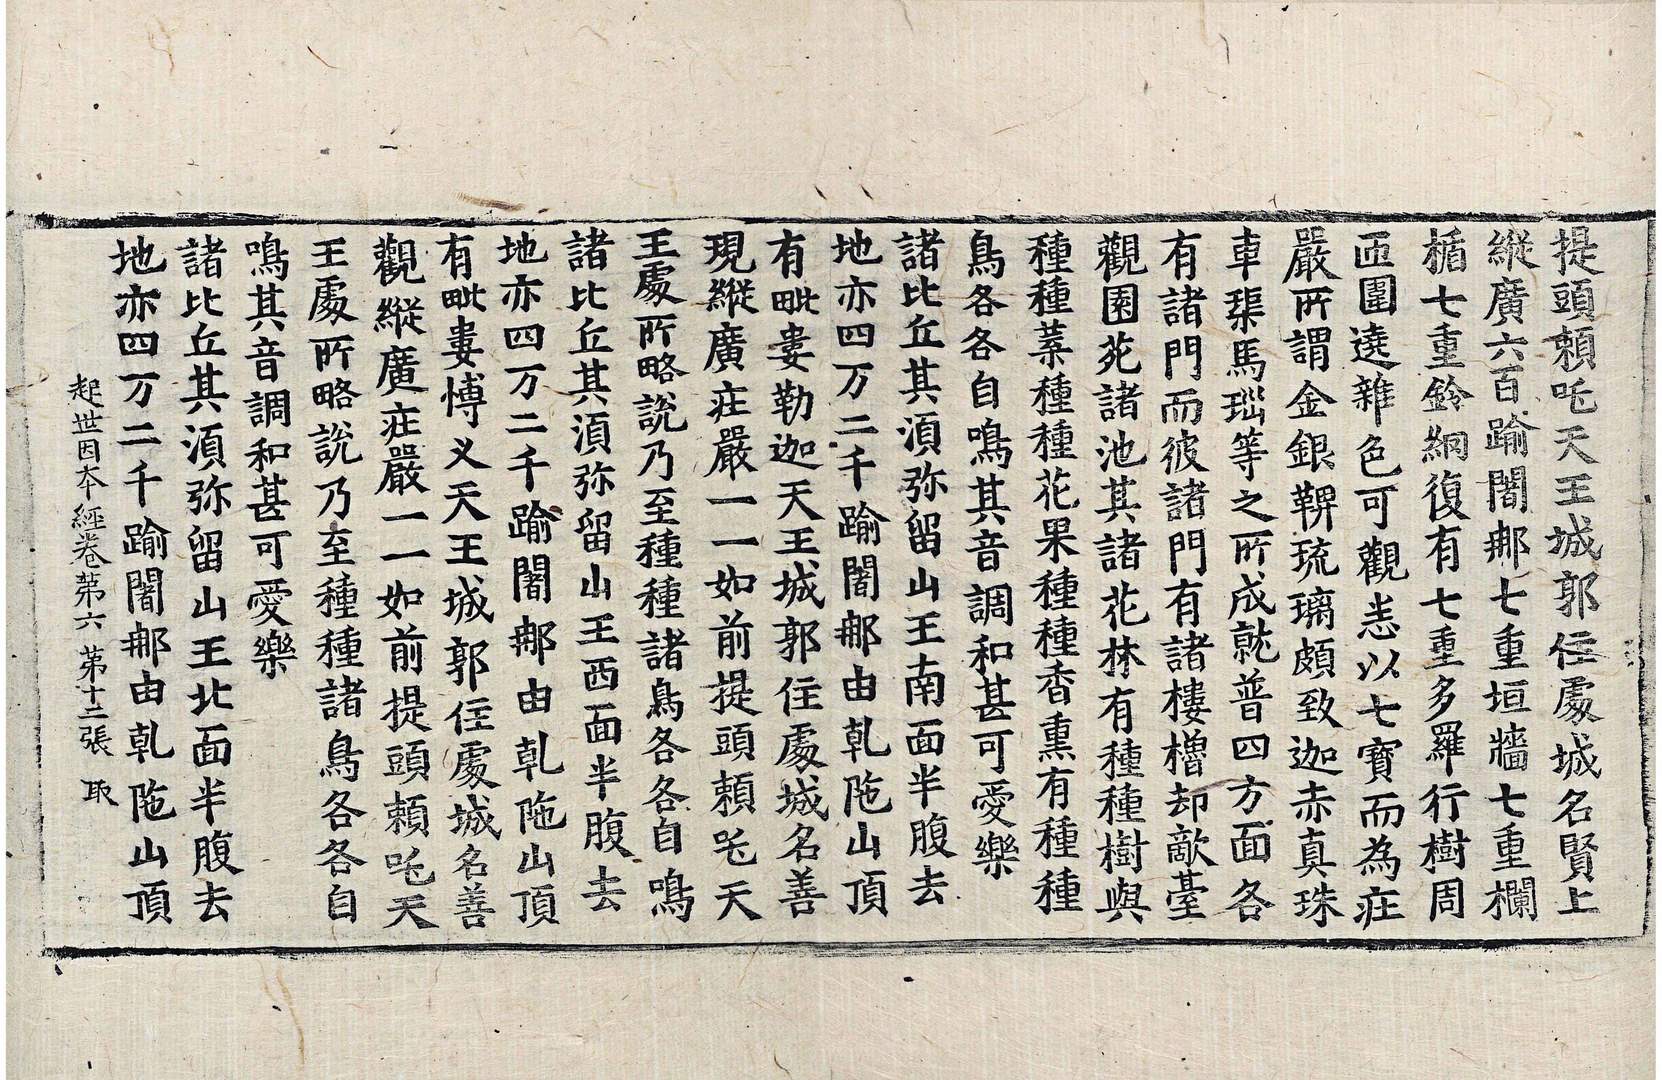 提頭賴吒天王城郭住處城名賢上
縱廣六百踰闍那七重垣牆七重欄
楯七重鈴網復有七重多羅行樹周
匝圍遶雜色可觀悉以七寶而為莊
嚴所謂金銀鞞琉璃頗致迦赤真珠
車璖馬瑙等之所成就普四方面各
有諸門而彼諸門有諸樓櫓却敵臺
觀園苑諸池其諸花林有種種樹與
種種葉種種花果種種香熏有種種
鳥各各自鳴其音調和甚可愛樂
諸比丘其湏弥留山王南面半腹去
地亦四万二千踰闍那由乹陁山頂
有毗婁勒迦天王城郭住處城名善
現縱廣莊嚴一一如前提頭賴吒天
王處所略說乃至種種諸鳥各各自鳴
諸比丘其湏弥留山王西面半腹去
地亦四万二千踰闍那由乹陁山頂
有毗婁愽叉天王城郭住處城名善
觀縱廣莊嚴一一如前提頭賴吒天
王處所略說乃至種種諸鳥各各自
鳴其音調和甚可愛樂
諸比丘其湏弥留山王北面半腹去
地亦四万二千踰闍那由乹陁山頂
起世因本經卷第六 第十二張 取